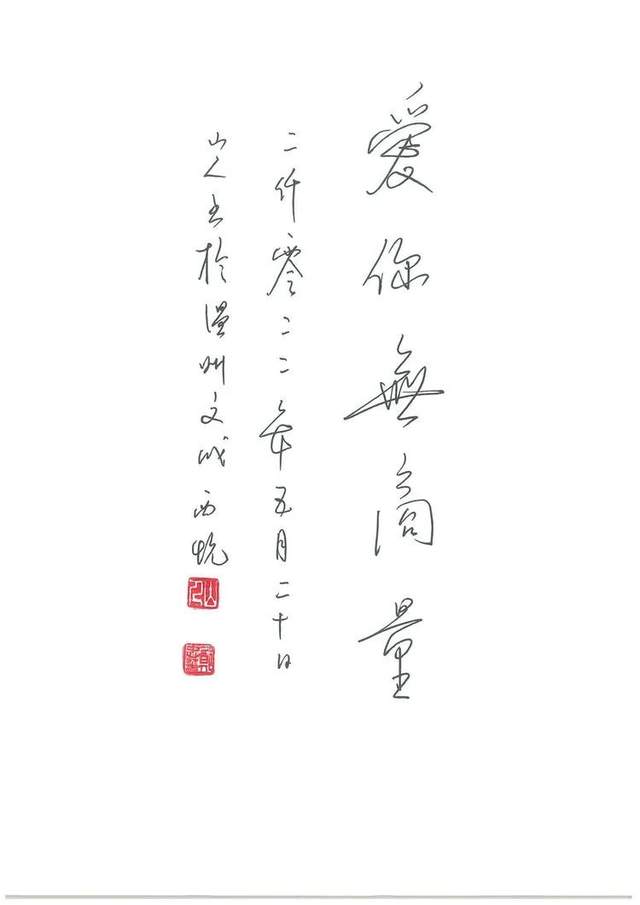 愛你無商量
二仟零二二年五月二十日
山人书於溫州文成西坑